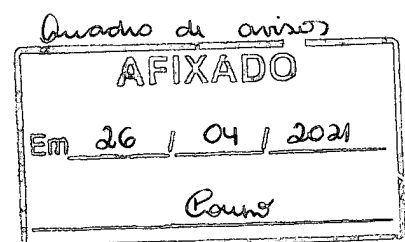 Quadro de avisos
AFIXADO
Em 26 / 04 / 2021